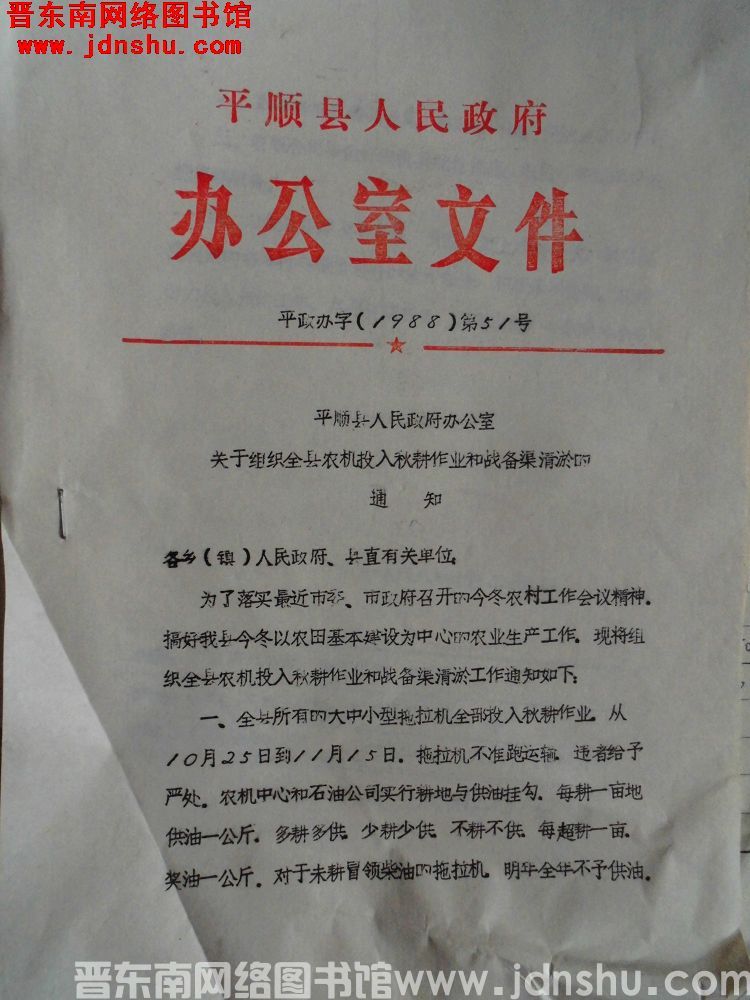 晋东南网络图书馆
www.jdnshu.com
平顺县人民政府
办公室文件
平政办字(1988)第51号
平顺县人民政府办公室
关于组织全县农机投入秋耕作业和战备渠清淤的
通 知
各乡(镇)人民政府、县直有关单位:
为了落实最近市委、市政府召开的今冬农村工作会议精神,
搞好我县今冬以农田基本建设为中心的农业生产工作。现将组
织全县农机投入秋耕作业和战备渠清淤工作通知如下:
一、全县所有的大中小型拖拉机全部投入秋耕作业。从
10月25日到11月15日。拖拉机不准跑运输。违者给予
严处。农机中心和石油公司实行耕地与供油挂勾。每耕一亩地
供油一公斤。多耕多供。少耕少供。不耕不供。每超耕一亩。
奖油一公斤。对于未耕冒领柴油的拖拉机。明年全年不予供油。
晋东南网络图书馆www.jdnshu.com